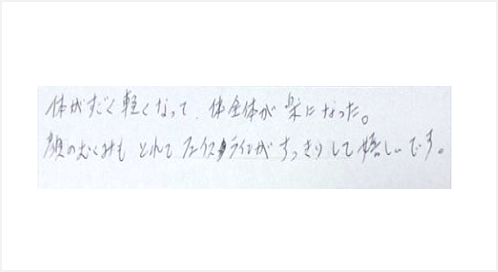 体がすごく軽くなって、体全体が楽になった。
顔のむくみもとれてフェイスラインがすっきりして嬉しいです。